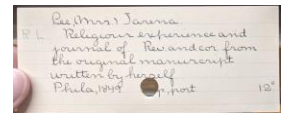 Lee, (Mrs) Jarena
R L Religious experience and
journal of Rev. and cor from
the original manuscript
written by herself
Phila, 1849 p, port 12°